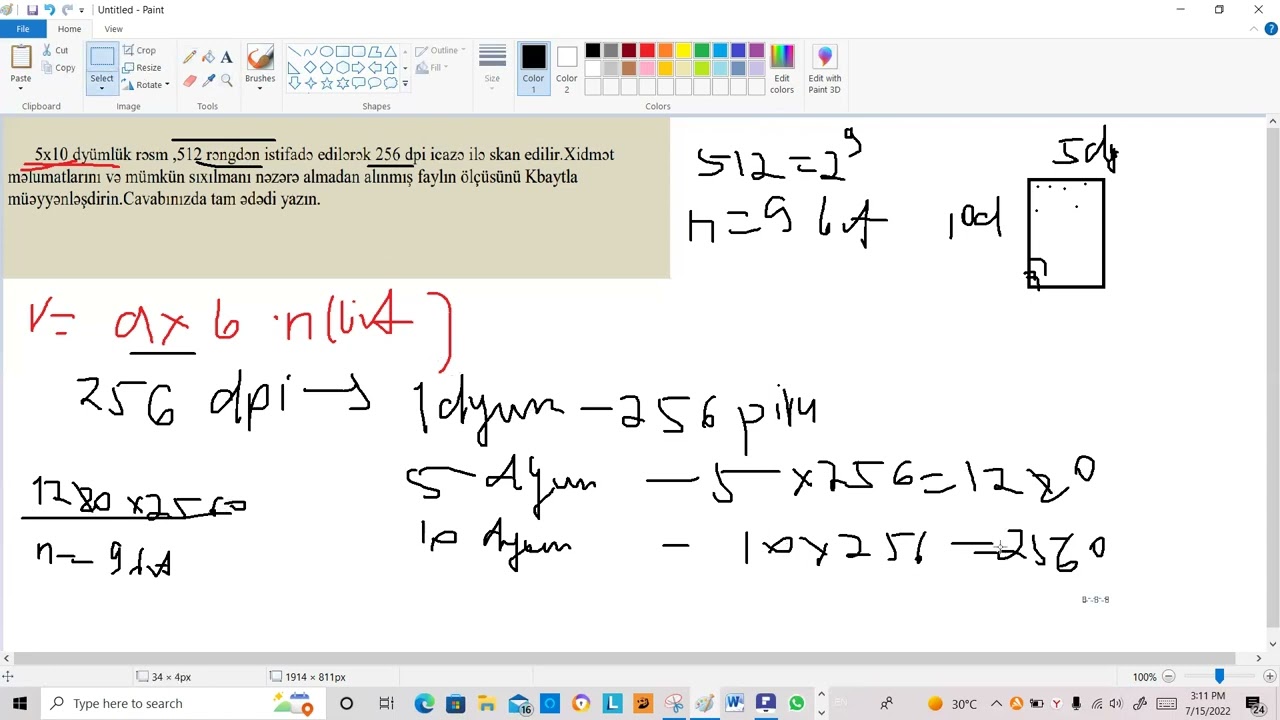 Untitled - Paint
File Home View
Paste Cut Copy Select Crop Resize Rotate Brushes Outline Fill Size Color 1 Color 2 Edit colors Edit with Paint 3D
Clipboard Image Tools Shapes Colors
5x10 dyümlük rəsm ,512 rəngdən istifadə edilərək 256 dpi icazə ilə skan edilir.Xidmət
məlumatlarını və mümkün sıxılmanı nəzərə almadan alınmış faylın ölçüsünü Kbaytla
müəyyənləşdirin.Cavabınızda tam ədədi yazın.
512=2⁹
n=9 bit
5dy
10d
V= axb ·n(bit)
256 dpi → 1dyum – 256
5 dyum — 5 x256=1280
10 dyum – 10x256 =2560
1280 x2560
n= 9bit
34 × 4px 1914 × 811px 100%
Type here to search
16
30°C
3:11 PM
7/15/2022
24